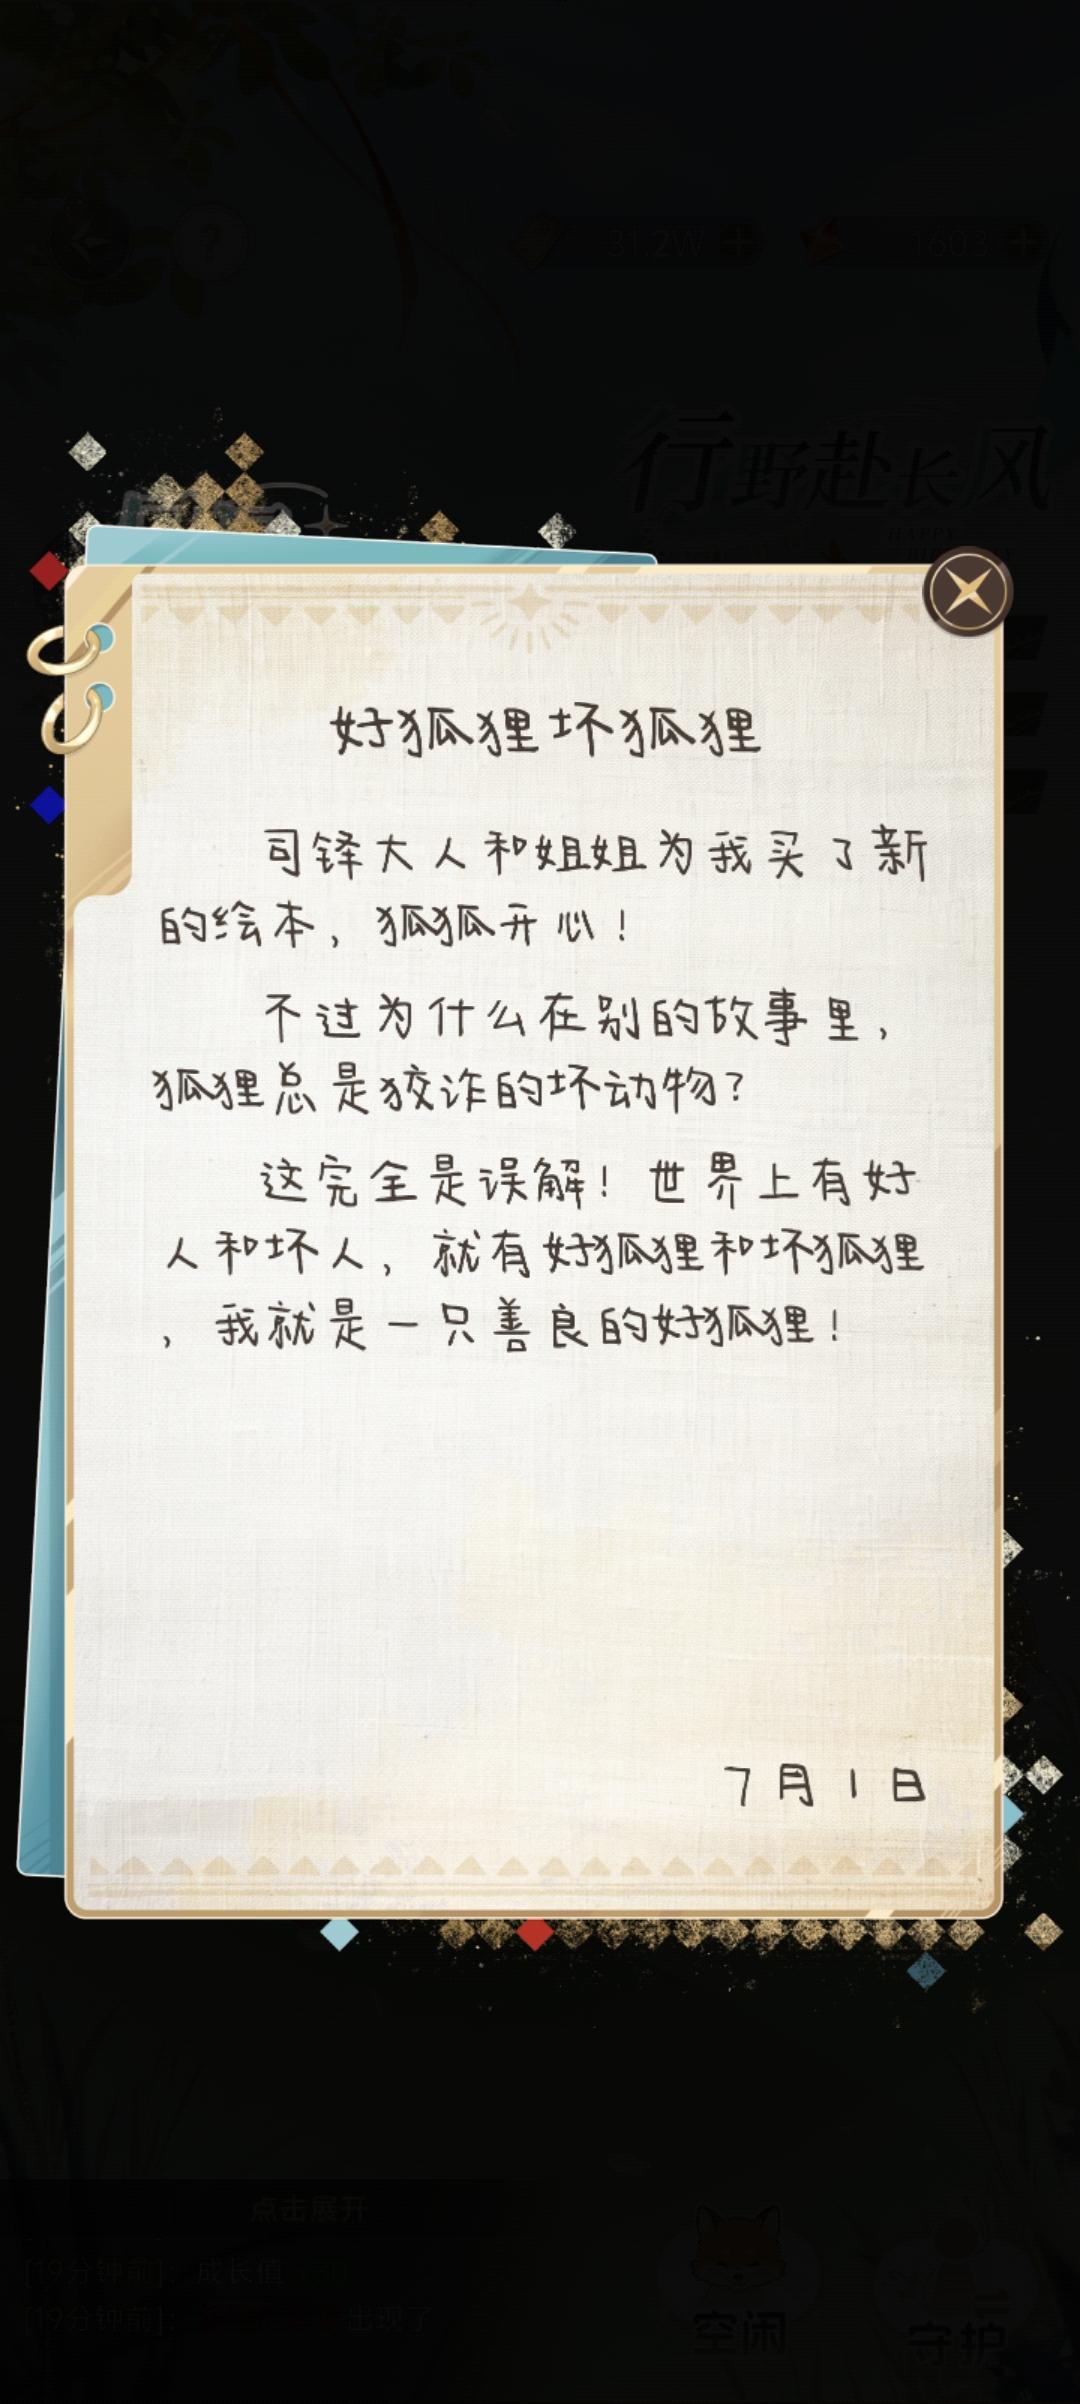 31.2W
1603
行野赴长风
HAPPY
好狐狸坏狐狸
司铎大人和姐姐为我买了新
的绘本，狐狐开心！
不过为什么在别的故事里，
狐狸总是狡诈的坏动物？
这完全是误解！世界上有好
人和坏人，就有好狐狸和坏狐狸
，我就是一只善良的好狐狸！
7月1日
点击展开
[19分钟前]：成长值
[19分钟前]：
出现了
空闲
守护